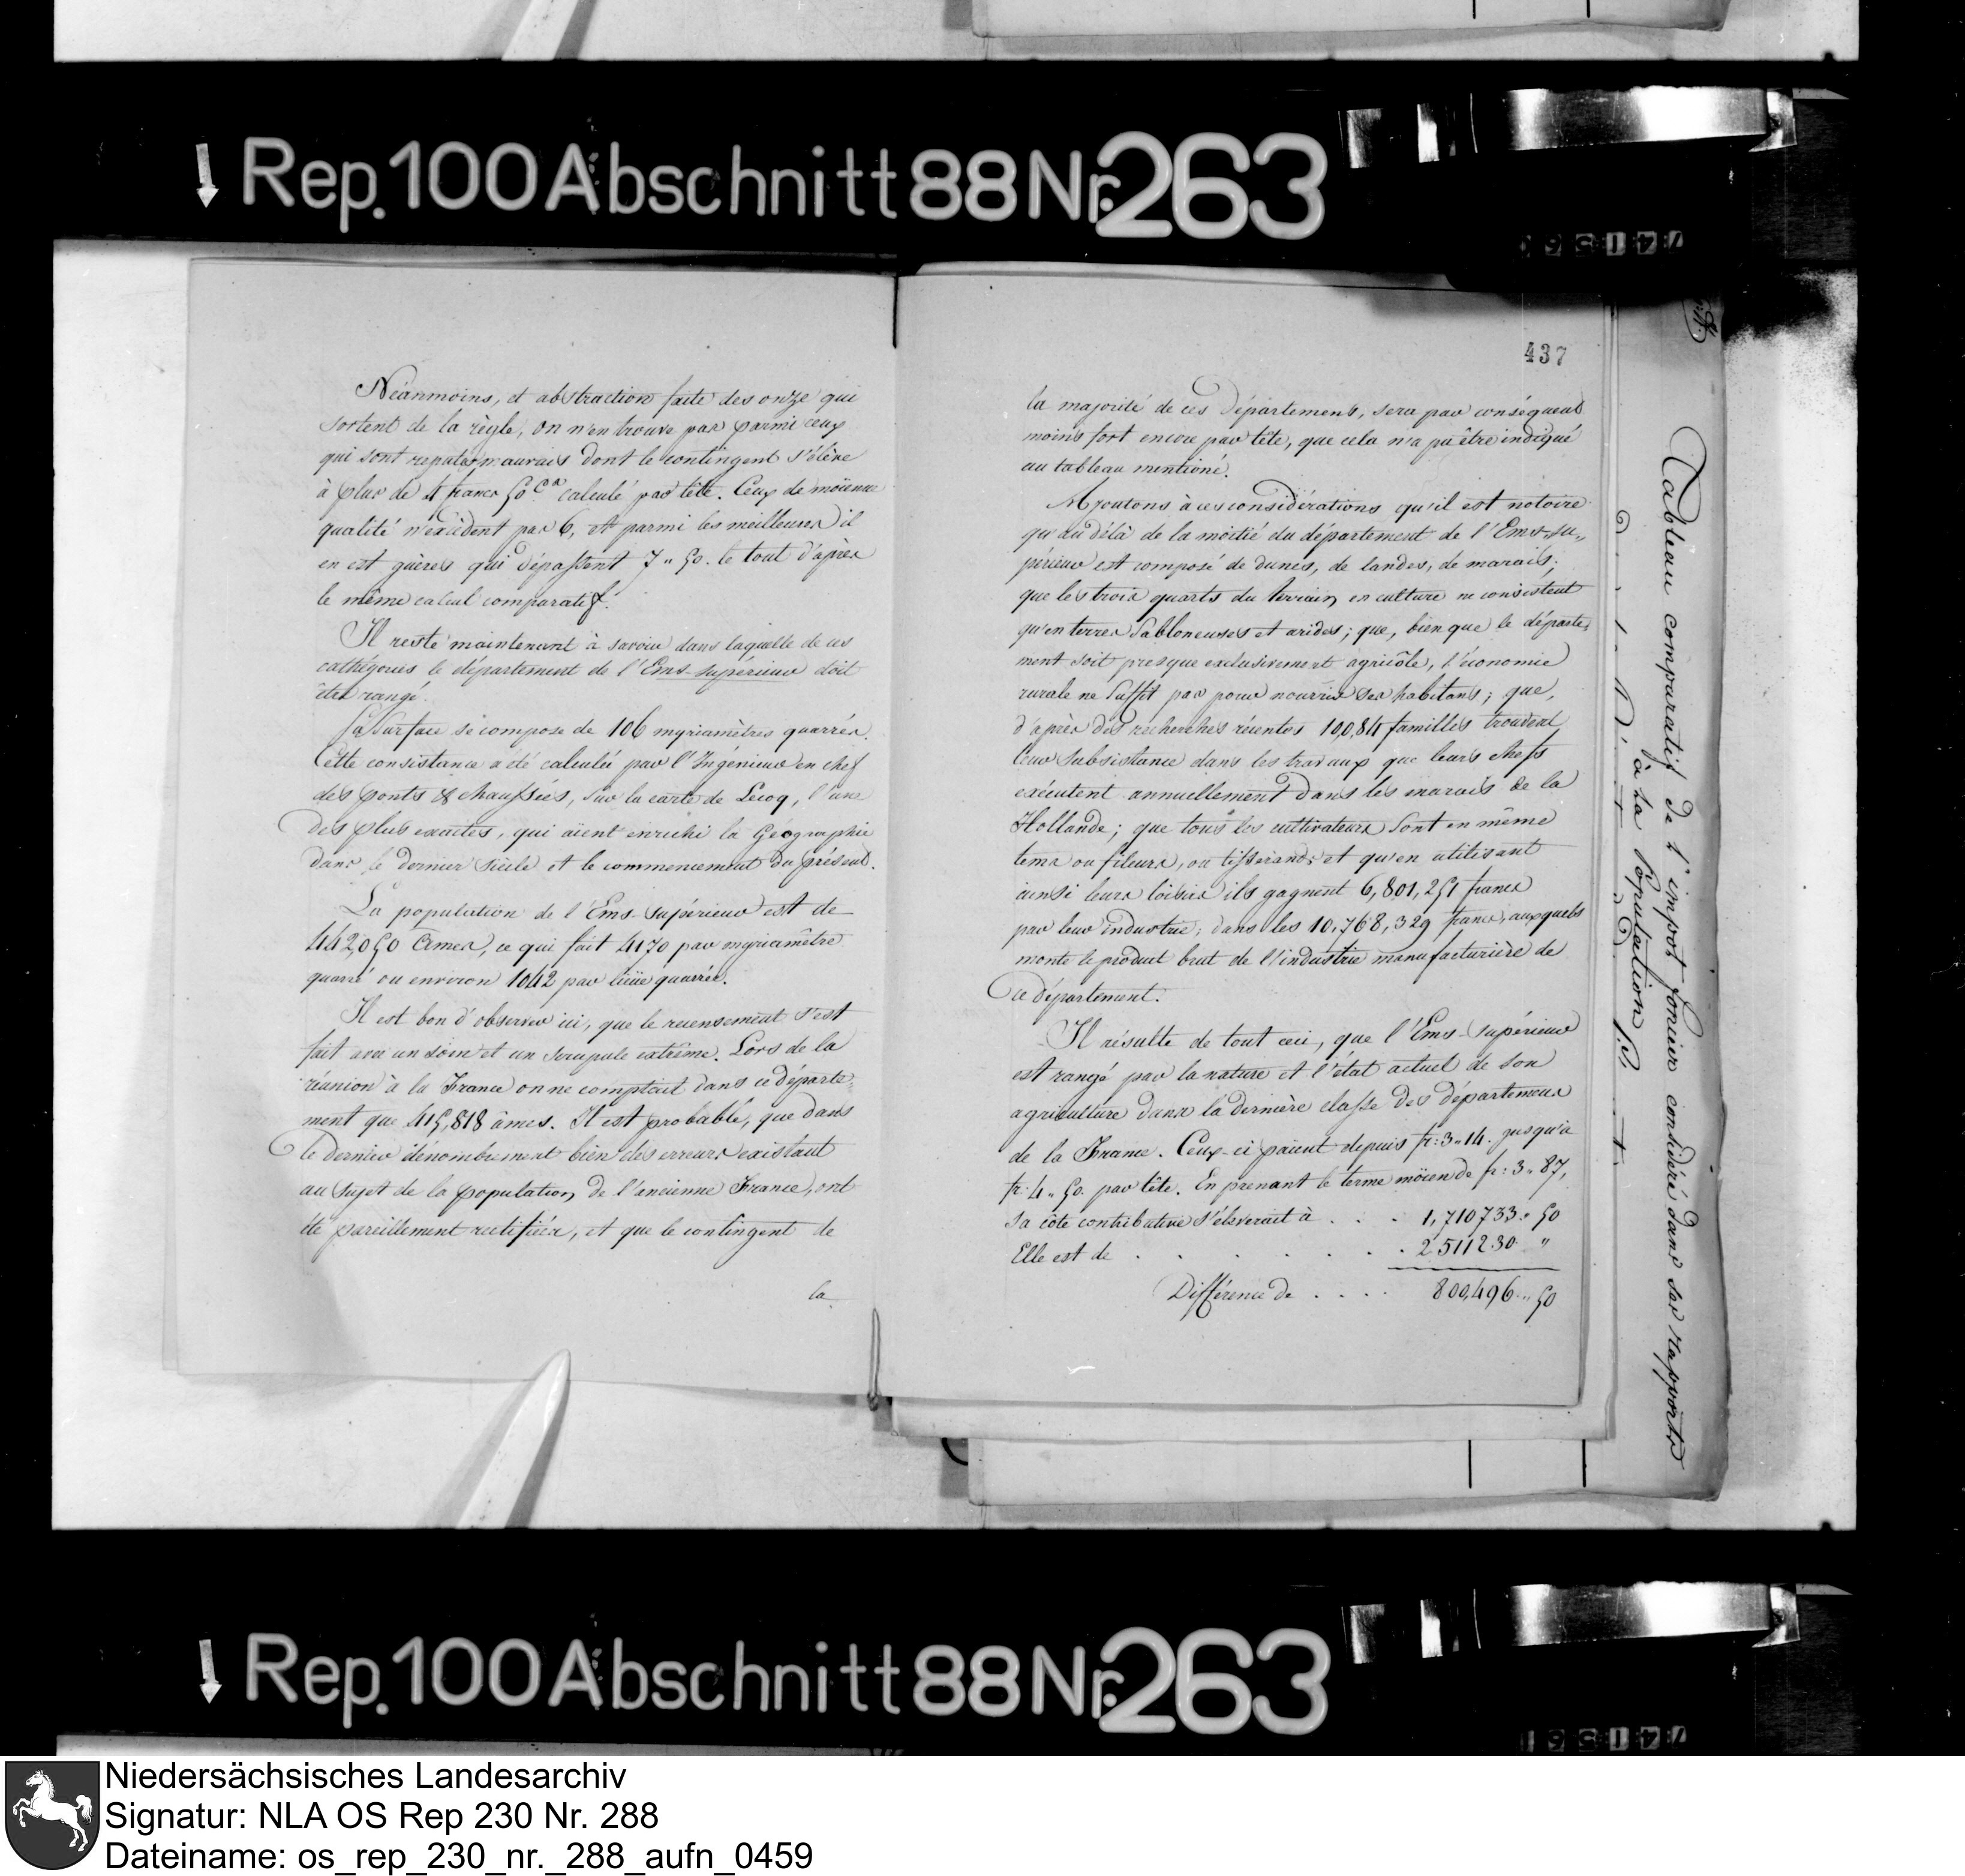 Rep. 100 Abschnitt 88 Nr. 263
Néanmoins, et abstraction faite des onze qui
sortent de la règle, on n'en trouve pas parmi ceux
qui sont reputés mauvais dont le contingent s'élève
à plus de 4 francs 50 cs calculé par tête. Ceux de moïenne
qualité n'excèdent pas 6, et parmi les meilleures il
en est guères qui dépassent 7 " 50. le tout d'après
le même calcul comparatif.
Il reste maintenant à savoir dans laquelle de ces
cathégories le département de l'Ems-supérieur doit
être rangé.
Sa Surface se compose de 106 myriamètres quarrés.
Cette consistance a été calculée par l'Ingénieur en chef
des ponts & chaussées, sur la carte de Lecoq, l'une
des plus exactes, qui aïent enrichi la Géographie
dans le dernier Siècle et le commencement du présent.
La population de l'Ems-Supérieur est de
442,050 âmes, ce qui fait 4170 par myriamètre
quarré ou environ 1042 par lieüe quarrée.
Il est bon d'observer ici, que le recensement s'est
fait avec un soin et un scrupule extrême. Lors de la
réunion à la France on ne comptait dans ce départe-
ment que 415,818 âmes. Il est probable, que dans
le dernier dénombrement bien des erreurs existant
au sujet de la population de l'ancienne France, ont
été pareillement rectifiées, et que le contingent de
la
437
la majorité de ces départements, sera par conséquent
moins fort encore par tête, que cela n'a pu être indiqué
au tableau mentioné.
Ajoutons à ces considérations qu'il est notoire
qu'au délà de la moitié du département de l'Ems-su„
périeur est composé de dunes, de landes, de marais;
que les trois quarts du terrain en culture ne consistent
qu'en terres Sabloneuses et arides; que, bien que le départe-
ment soit presque exclusivement agricôle, l'économie
rurale ne Suffit pas pour nourrir ses habitans; que,
d'après des recherches récentes 10,084 familles trouvent
leur Subsistance dans les travaux que leurs chefs
exécutent annuellement dans les marais de la
Hollande; que tous les cultivateurs Sont en même
tems ou fileurs, ou tisserands et qu'en utilisant
ainsi leurs loisirs ils gagnent 6,801,251 francs
par leur industrie, dans les 10,768,329 francs, auxquels
monte le produit brut de l'industrie manufacturière de
ce département.
Il résulte de tout ceci, que l'Ems-Supérieur
est rangé par la nature et l'état actuel de son
agriculture dans la dernière classe des départemens
de la France. Ceux-ci païent depuis fr: 3 " 14. jusqu'à
fr: 4 " 50. par tête. En prenant le terme moïen de fr: 3 " 87,
sa côte contributive s'éleverait à . . . 1,710733 " 50
Elle est de . . . . . . . 2511230 "
Différence de . . . . 800,496 " 50
Tableau comparatif de l'impot foncier considéré dans ses rapports
à la Population
Rep. 100 Abschnitt 88 Nr. 263
Niedersächsisches Landesarchiv
Signatur: NLA OS Rep 230 Nr. 288
Dateiname: os_rep_230_nr._288_aufn_0459